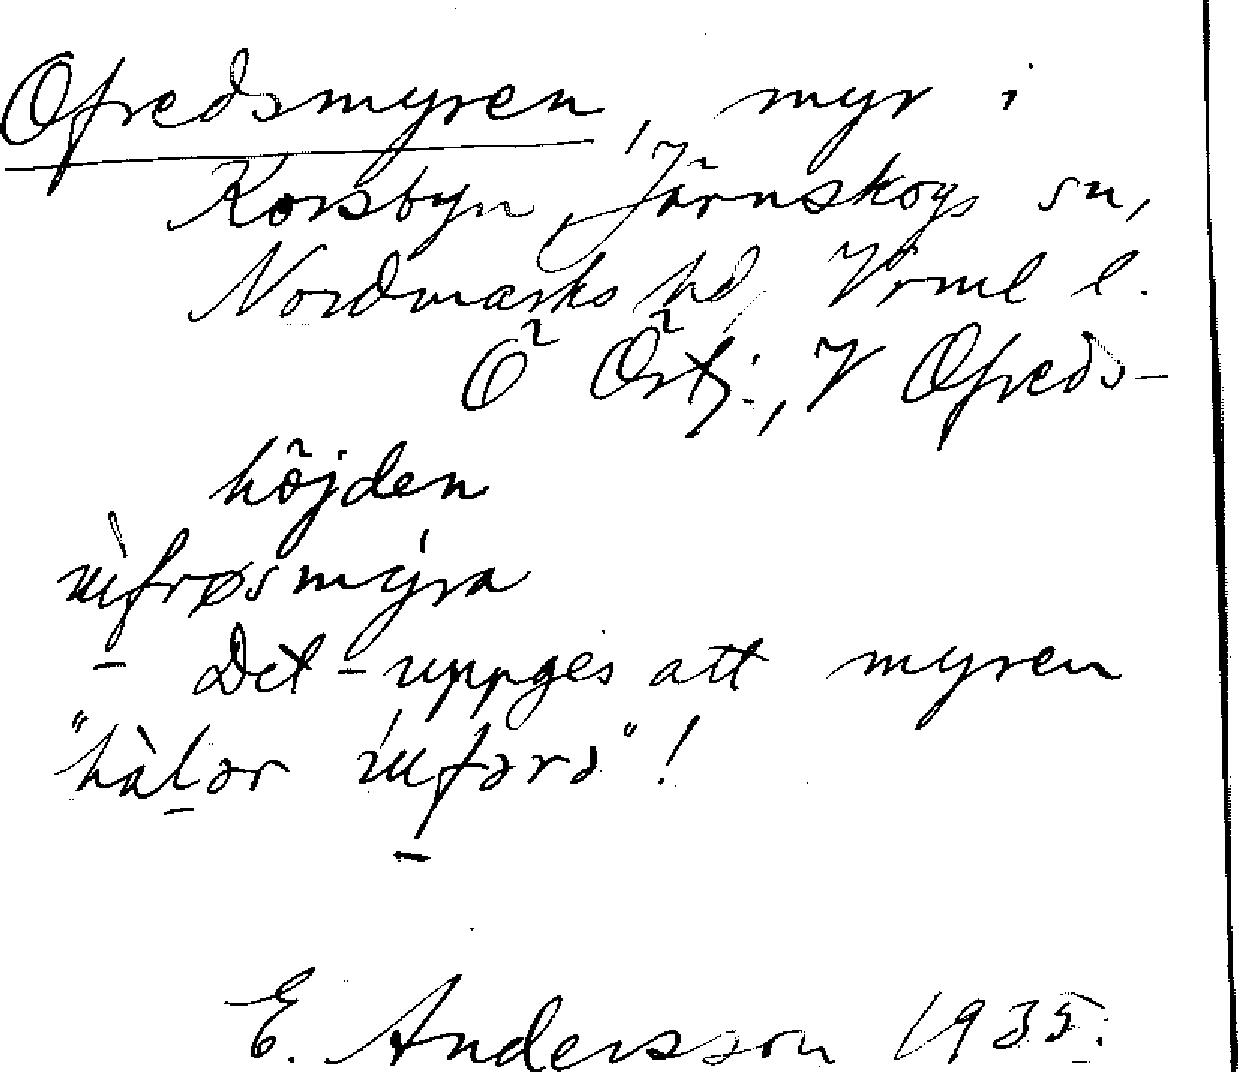 Ofredsmyren, myr i
Korsbyn, Järnskogs sn,
Nordmarks hd, Vrml l.
Ö Östj:, V Ofreds-
höjden
ùfrøsmýra
Det uppges att myren
"hàlər ùfərd"!
E. Andersson 1935.